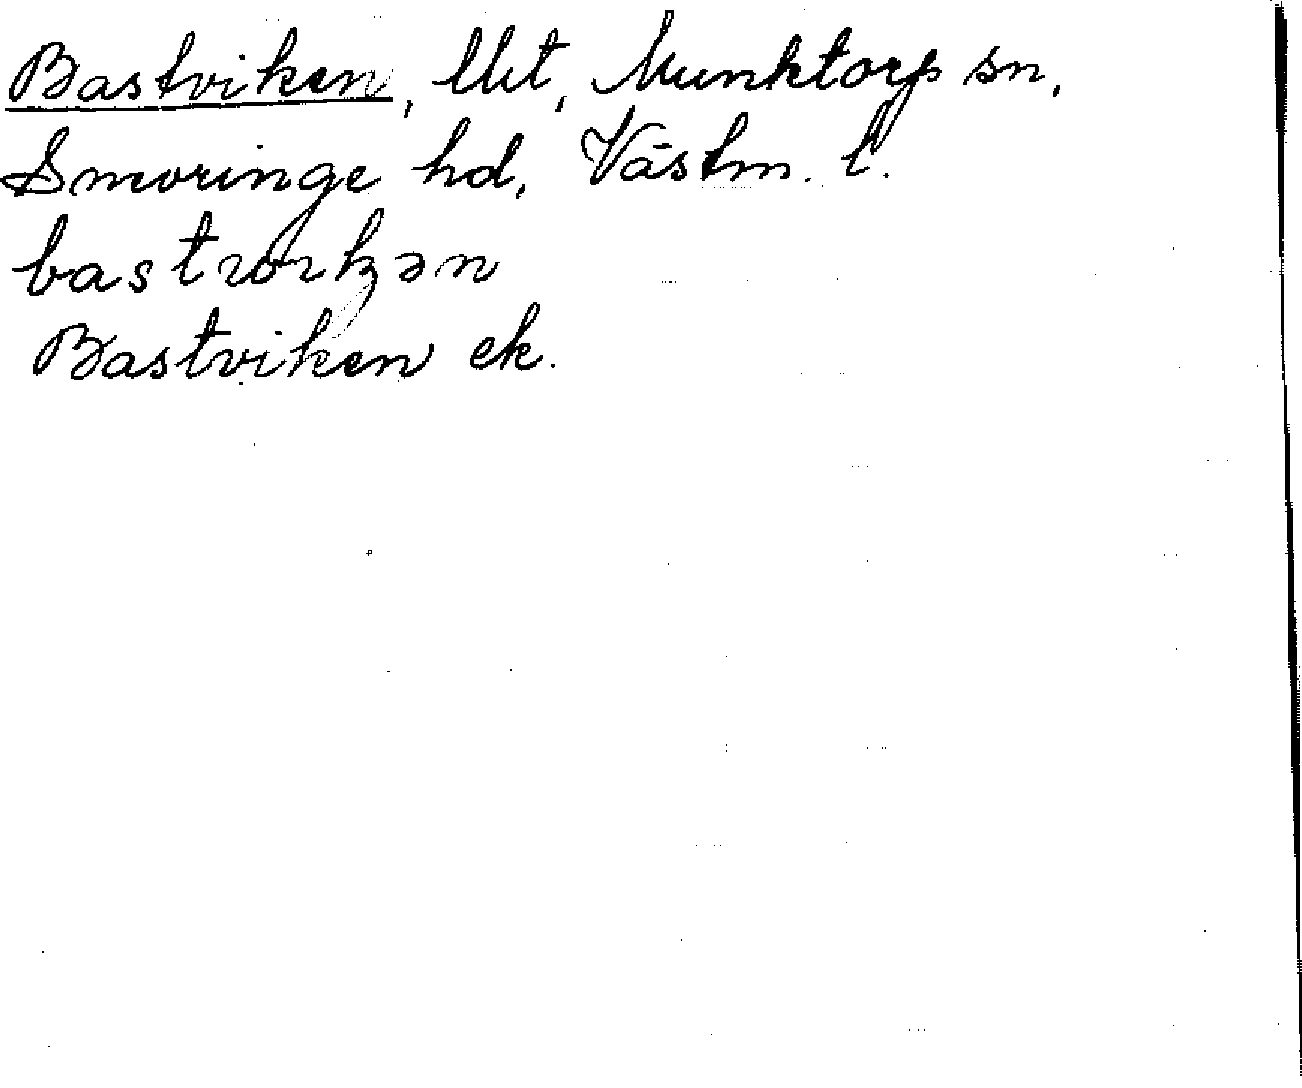 Bastviken, llht, Munktorp sn,
Snevringe hd, Västm. l.
Bastviken ek.